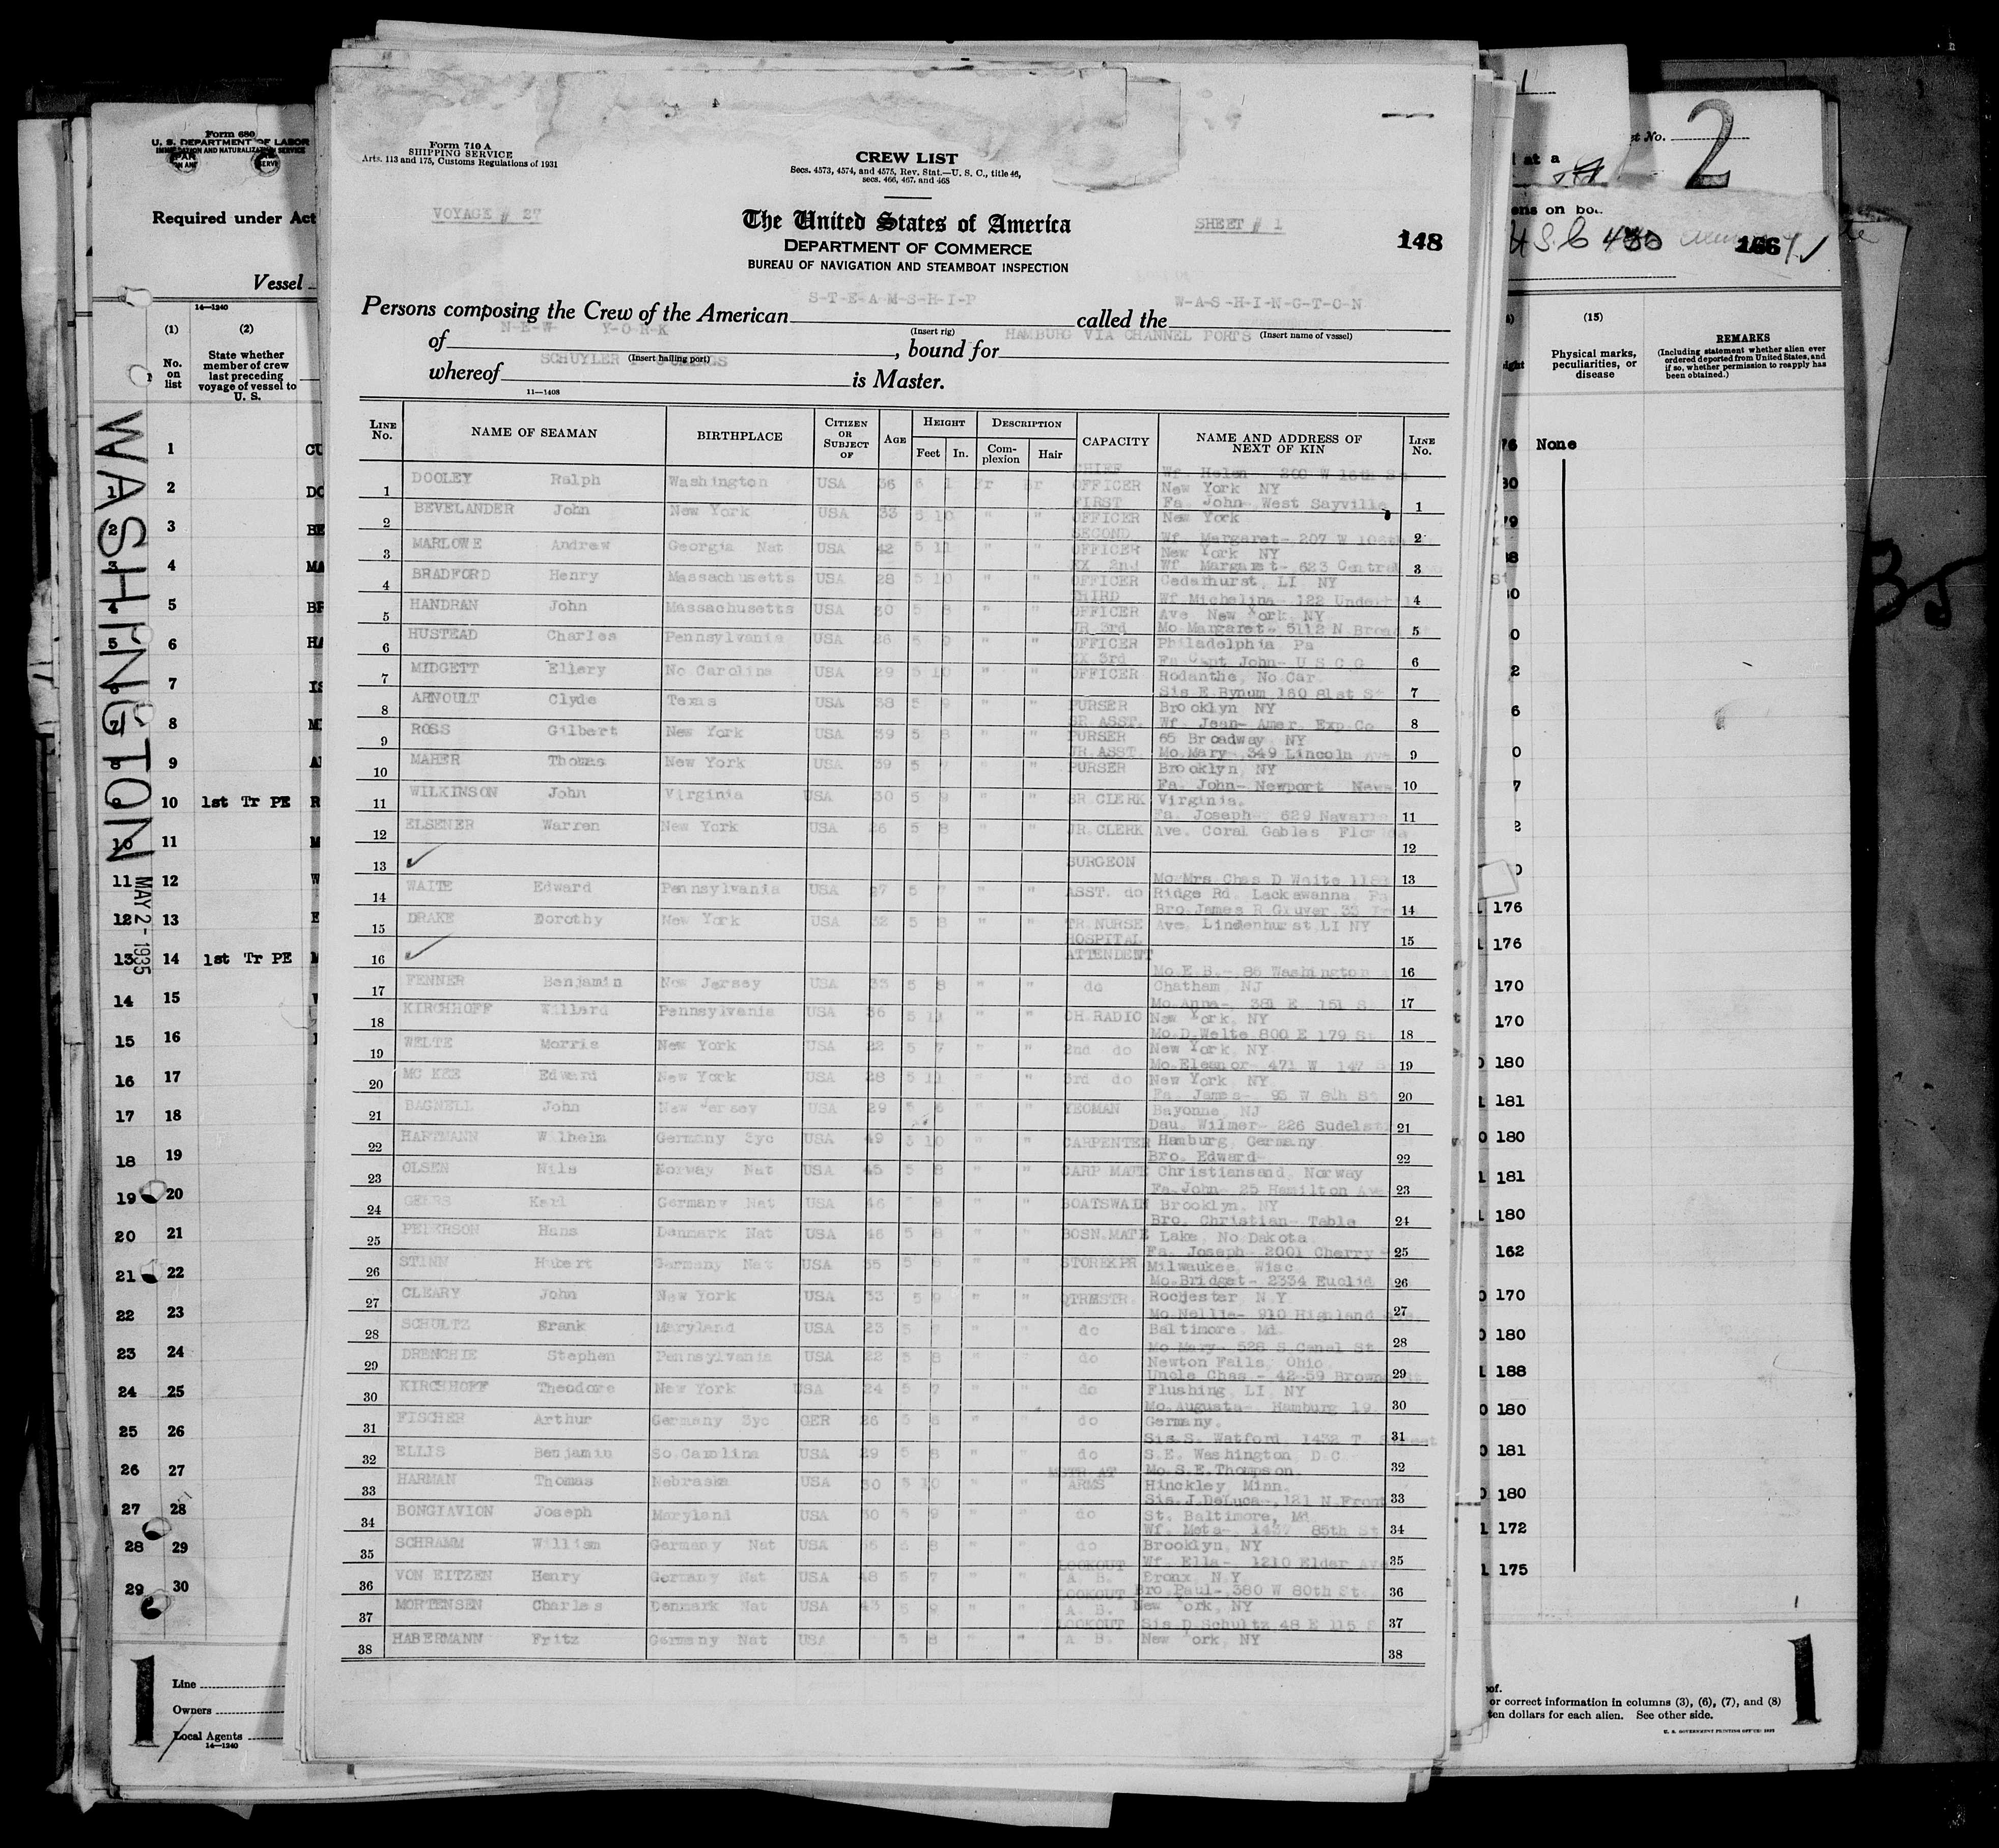 Form 710 A
SHIPPING SERVICE
Arts. 113 and 175, Customs Regulations of 1931
CREW LIST
Secs. 4573, 4574, and 4575, Rev. Stat.—U. S. C., title 46,
secs. 466, 467, and 468
VOYAGE # 27
The United States of America
SHEET # 1
DEPARTMENT OF COMMERCE
148
BUREAU OF NAVIGATION AND STEAMBOAT INSPECTION
Persons composing the Crew of the American S-T-E-A-M-S-H-I-P called the W-A-S-H-I-N-G-T-O-N
(Insert rig) (Insert name of vessel)
of N-E-W- Y-O-R-K, bound for HAMBURG VIA CHANNEL PORTS
(Insert hailing port)
whereof SCHUYLER is Master.
11—1408
LINE No. NAME OF SEAMAN BIRTHPLACE CITIZEN OR SUBJECT OF AGE HEIGHT Feet In. DESCRIPTION Complexion Hair CAPACITY NAME AND ADDRESS OF NEXT OF KIN LINE No.
1 DOOLEY Ralph Washington USA 36 6 1 Fr Br CHIEF OFFICER Wf. Helen- 200 W 16th St New York NY 1
2 BEVELANDER John New York USA 33 5 10 " " FIRST OFFICER Fa. John- West Sayville New York 2
3 MARLOWE Andrew Georgia Nat USA 42 5 11 " " SECOND OFFICER Wf. Margaret- 207 W 106th New York NY 3
4 BRADFORD Henry Massachusetts USA 28 5 10 " " EX 2nd OFFICER Wf. Margaret- 623 Central Cedarhurst, LI NY 4
5 HANDRAN John Massachusetts USA 30 5 8 " " THIRD OFFICER Wf Michelina- 122 Underhill Ave New York, NY 5
6 HUSTEAD Charles Pennsylvania USA 26 5 9 " " JR 3rd OFFICER Mo Margaret- 5112 N Broad Philadelphia Pa 6
7 MIDGETT Ellery No Carolina USA 29 5 10 " " EX 3rd OFFICER Fa Capt John- U S C G Rodanthe, No Car 7
8 ARNOULT Clyde Texas USA 38 5 9 " " PURSER Sis E Bynum 160 81st St Brooklyn NY 8
9 ROSS Gilbert New York USA 39 5 8 " " SR ASST. PURSER Wf. Jean- Amer. Exp. Co 65 Broadway NY 9
10 MAHER Thomas New York USA 39 5 7 " " JR ASST. PURSER Mo Mary 349 Lincoln Ave Brooklyn, NY 10
11 WILKINSON John Virginia USA 30 5 9 " " SR CLERK Fa. John- Newport News Virginia. 11
12 ELSENER Warren New York USA 26 5 8 " " JR CLERK Fa. Joseph- 629 Navarra Ave. Coral Gables Florida 12
13 ✓ SURGEON 13
14 WAITE Edward Pennsylvania USA 27 5 7 " " ASST. do Mo Mrs Chas D Waite Ridge Rd. Lackawanna, Pa 14
15 DRAKE Dorothy New York USA 32 5 8 " " TR NURSE Bro James R Gruver 33 Ave. Lindenhurst LI NY 15
16 ✓ HOSPITAL ATTENDENT 16
17 FENNER Benjamin New Jersey USA 33 5 8 " " do Mo E B.- 86 Washington Chatham, NJ 17
18 KIRCHHOFF Willard Pennsylvania USA 36 5 11 " " CH RADIO Mo Anna- 381 E 151 St New York, NY 18
19 WELTE Morris New York USA 22 5 7 " " 2nd do Mo D. Welte 800 E 179 St New York, NY 19
20 MC KEE Edward New York USA 28 5 11 " " 3rd do Mo Eleanor 471 W 147 S New York NY 20
21 BAGNELL John New Jersey USA 29 5 6 " " YEOMAN Fa. James- 93 W 8th St Bayonne, NJ 21
22 HARTMANN Wilhelm Germany Syc USA 49 5 10 " " CARPENTER Dau. Wilmer- 226 Hamburg, Germany 22
23 OLSEN Nils Norway Nat USA 45 5 8 " " CARP MATE Bro. Edward- Christiansand, Norway 23
24 GEERS Karl Germany Nat USA 46 9 " " BOATSWAIN Fa. John- 25 Hamilton Ave Brooklyn, NY 24
25 PETERSON Hans Denmark Nat USA 46 5 8 " " BOSN.MATE Bro. Christian- Table Lake, No Dakota 25
26 STINN Hubert Germany Nat USA 35 5 6 " " STOREKPR Fa. Joseph- 2001 Cherry Milwaukee, Wisc. 26
27 CLEARY John New York USA 33 5 9 " " QTRMSTR. Mo Bridget- 2334 Euclid Rochester, N Y 27
28 SCHULTZ Frank Maryland USA 23 5 7 " " do Mo Nellie- 910 Highland Ave Baltimore, Md. 28
29 DRENCHIE Stephen Pennsylvania USA 22 5 8 " " do Mo Mary- 528 S Canal St Newton Falls, Ohio 29
30 KIRCHHOFF Theodore New York USA 24 5 7 " " do Uncle Chas - 42-59 Browne St Flushing LI, NY 30
31 FISCHER Arthur Germany Syc GER 26 5 6 " " do Mo Augusta- Hamburg 19 Germany. 31
32 ELLIS Benjamin So. Carolina USA 29 5 8 " " do Sis S. Watford, 1432 T Street S.E. Washington, D C 32
33 HARMAN Thomas Nebraska USA 30 5 10 " " MSTR AT ARMS Mo. S.E.Thompson Hinckley Minn. 33
34 BONGIAVION Joseph Maryland USA 30 5 9 " " do Sis. J.DeLuca-, 121 N.Front St. Baltimore, Md 34
35 SCHRAMM William Germany Nat USA 8 " " do Wf. Meta-, 85th St Brooklyn, NY 35
36 VON EITZEN Henry Germany Nat USA 48 5 7 " " LOOKOUT A. B. Wf. Ella- 1210 Elder Ave Bronx, N.Y 36
37 MORTENSEN Charles Denmark Nat USA 43 5 9 " " LOOKOUT A. B. Bro Paul- 380 W 80th St. New York, NY 37
38 HABERMANN Fritz Germany Nat USA 5 8 " " LOOKOUT A B. Sis D Schultz 48 E 115 S New York, NY 38
Form 680
U. S. DEPARTMENT OF LABOR
IMMIGRATION AND NATURALIZATION SERVICE
Required under Act
Vessel
14—1240
(1) (2)
No. on list
State whether member of crew last preceding voyage of vessel to U. S.
WASHINGTON
MAY 2 - 1935
1
1 2
2 3
3 4
4 5
5 6
6 7
7 8
8 9
9 10 1st Tr PE
10 11
11 12
12 13
13 14 1st Tr PE
14 15
15 16
16 17
17 18
18 19
19 20
20 21
21 22
22 23
23 24
24 25
25 26
26 27
27 28
28 29
29 30
1
Line
Owners
Local Agents
14—1240
2
at a
(15)
Physical marks, peculiarities, or disease
REMARKS
(Including statement whether alien ever ordered deported from United States, and if so, whether permission to reapply has been obtained.)
None
176
176
170
170
180
181
180
181
180
162
170
180
188
180
181
180
172
175
or correct information in columns (3), (6), (7), and (8)
ten dollars for each alien. See other side.
U. S. GOVERNMENT PRINTING OFFICE
1